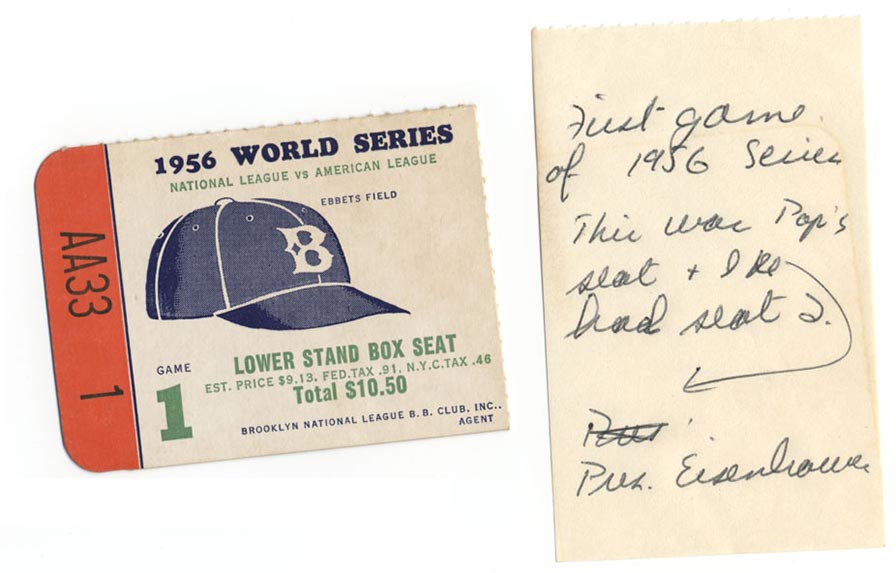 1956 WORLD SERIES
NATIONAL LEAGUE vs AMERICAN LEAGUE
EBBETS FIELD
B
AA33 1
LOWER STAND BOX SEAT
EST. PRICE $9.13. FED.TAX .91. N.Y.C.TAX .46
Total $10.50
GAME
1
BROOKLYN NATIONAL LEAGUE B.B. CLUB, INC..
AGENT
First game
of 1956 Series
This was Pop's
seat + Ike
had seat 2.
Pres. Eisenhower